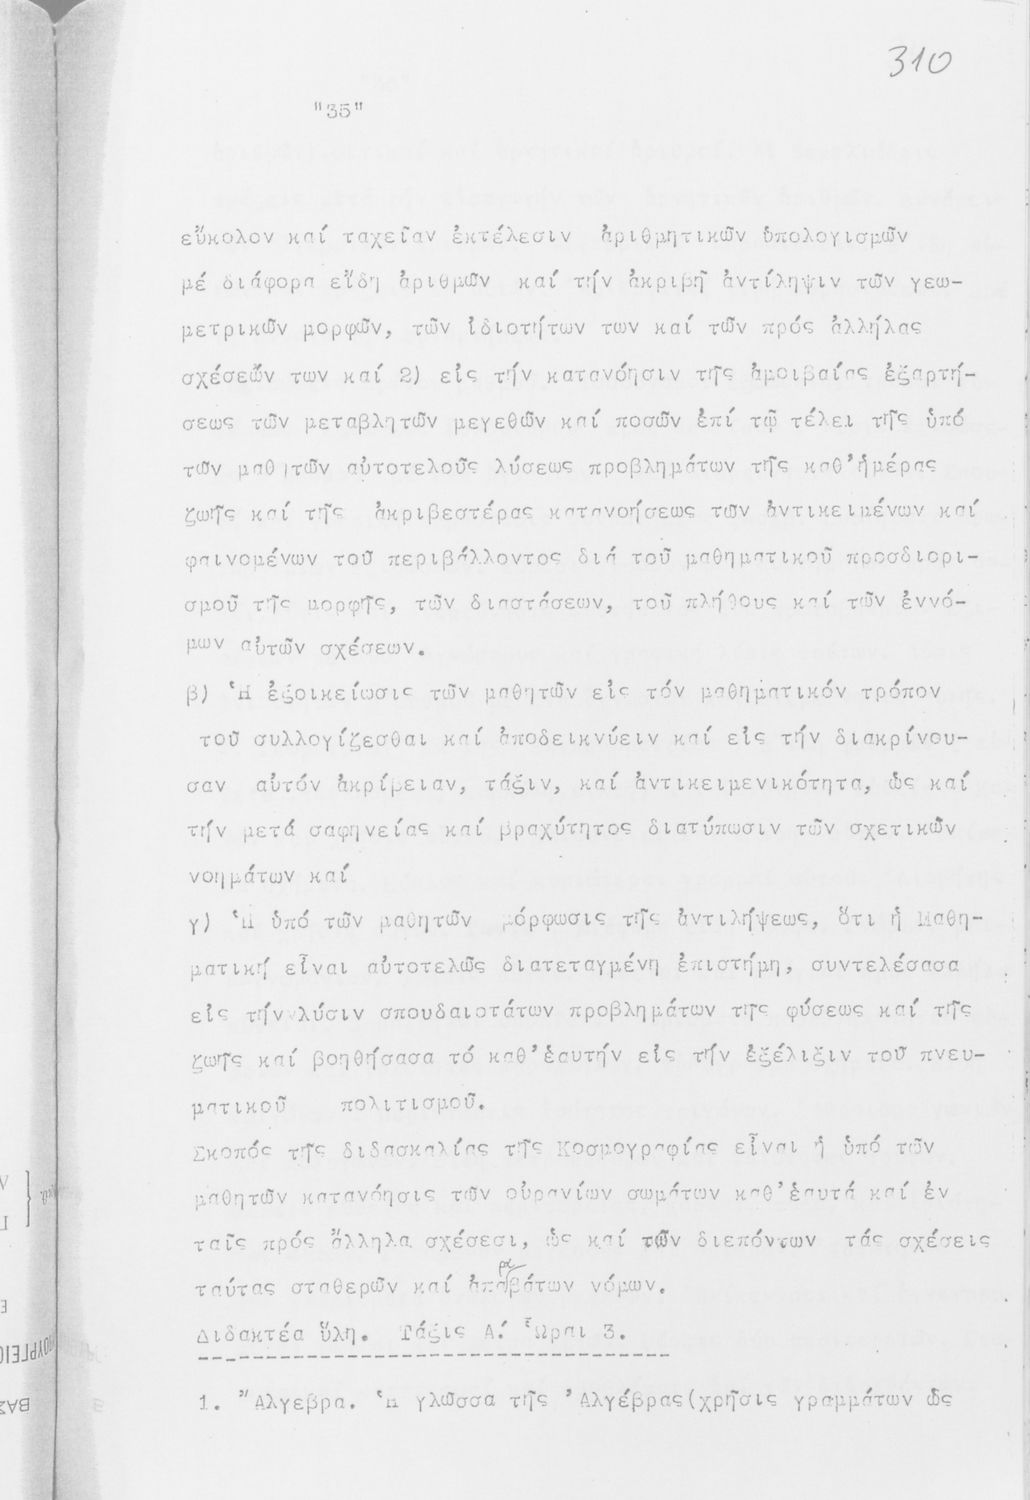 310
"35"
εὔκολον καί ταχεῖαν ἐκτέλεσιν ἀριθμητικῶν ὑπολογισμῶν
μέ διάφορα εἴδη ἀριθμῶν καί τήν ἀκριβῆ ἀντίληψιν τῶν γεω-
μετρικῶν μορφῶν, τῶν ἰδιοτήτων των καί τῶν πρός ἀλλήλας
σχέσεῶν των καί 2) εἰς τήν κατανόησιν τῆς ἀμοιβαίας ἐξαρτή-
σεως τῶν μεταβλητῶν μεγεθῶν καί ποσῶν ἐπί τῷ τέλει τῆς ὑπό
τῶν μαθητῶν αὐτοτελοῦς λύσεως προβλημάτων τῆς καθ'ἡμέρας
ζωῆς καί τῆς ἀκριβεστέρας κατανοήσεως τῶν ἀντικειμένων καί
φαινομένων τοῦ περιβάλλοντος διά τοῦ μαθηματικοῦ προσδιορι-
σμοῦ τῆς μορφῆς, τῶν διαστάσεων, τοῦ πλήθους καί τῶν ἐννό-
μων αὐτῶν σχέσεων.
β) Ἡ ἐξοικείωσις τῶν μαθητῶν εἰς τόν μαθηματικόν τρόπον
τοῦ συλλογίζεσθαι καί ἀποδεικνύειν καί εἰς τήν διακρίνου-
σαν αὐτόν ἀκρίβειαν, τάξιν, καί ἀντικειμενικότητα, ὡς καί
τήν μετά σαφηνείας καί βραχύτητος διατύπωσιν τῶν σχετικῶν
νοημάτων καί
γ) Ἡ ὑπό τῶν μαθητῶν μόρφωσις τῆς ἀντιλήψεως, ὅτι ἡ Μαθη-
ματική εἶναι αὐτοτελῶς διατεταγμένη ἐπιστήμη, συντελέσασα
εἰς τήν λύσιν σπουδαιοτάτων προβλημάτων τῆς φύσεως καί τῆς
ζωῆς καί βοηθήσασα τό καθ'ἑαυτήν εἰς τήν ἐξέλιξιν τοῦ πνευ-
ματικοῦ πολιτισμοῦ.
Σκοπός τῆς διδασκαλίας τῆς Κοσμογραφίας εἶναι ἡ ὑπό τῶν
μαθητῶν κατανόησις τῶν οὐρανίων σωμάτων καθ'ἑαυτά καί ἐν
ταῖς πρός ἄλληλα σχέσεσι, ὡς καί τῶν διεπόντων τάς σχέσεις
ταύτας σταθερῶν καί ἀπαραβάτων νόμων.
Διδακτέα ὕλη. Τάξις Α.' Ὧραι 3.
1. Ἄλγεβρα. Ἡ γλῶσσα τῆς Ἀλγέβρας(χρῆσις γραμμάτων ὡς